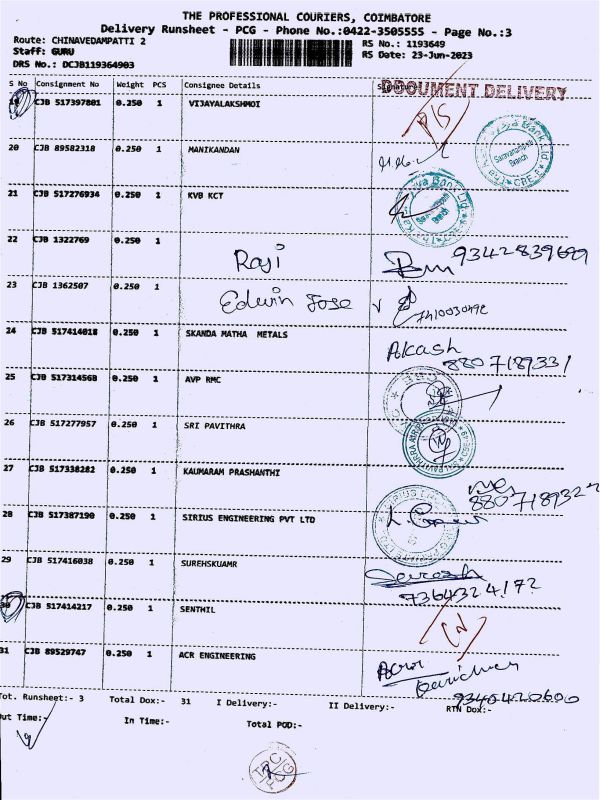 THE PROFESSIONAL COURIERS, COIMBATORE
Delivery Runsheet - PCG - Phone No.:0422-3505555 - Page No.:3
Route: CHINAVEDAMPATTI 2
RS No.: 1193649
Staff: GURU
RS Date: 23-Jun-2023
DRS No.: DCJB119364903
S No Consignment No Weight PCS Consignee Details Signature
DOCUMENT DELIVERY
19 CJB 517397801 0.250 1 VIJAYALAKSHMOI
20 CJB 89582318 0.250 1 MANIKANDAN
21 CJB 517276934 0.250 1 KVB KCT
22 CJB 1322769 0.250 1
Raji 9342839689
23 CJB 1362507 0.250 1
Edwin Jose
24 CJB 517414018 0.250 1 SKANDA MATHA METALS
Akash
8807189331
25 CJB 517314568 0.250 1 AVP RMC
26 CJB 517277957 0.250 1 SRI PAVITHRA
27 CJB 517338282 0.250 1 KAUMARAM PRASHANTHI
28 CJB 517387190 0.250 1 SIRIUS ENGINEERING PVT LTD
29 CJB 517416038 0.250 1 SUREHSKUAMR
Suresh
7364324172
30 CJB 517414217 0.250 1 SENTHIL
31 CJB 89529747 0.250 1 ACR ENGINEERING
Tot. Runsheet:- 3 Total Dox:- 31 I Delivery:- II Delivery:- RTN Dox:-
Out Time:- In Time:- Total POD:-